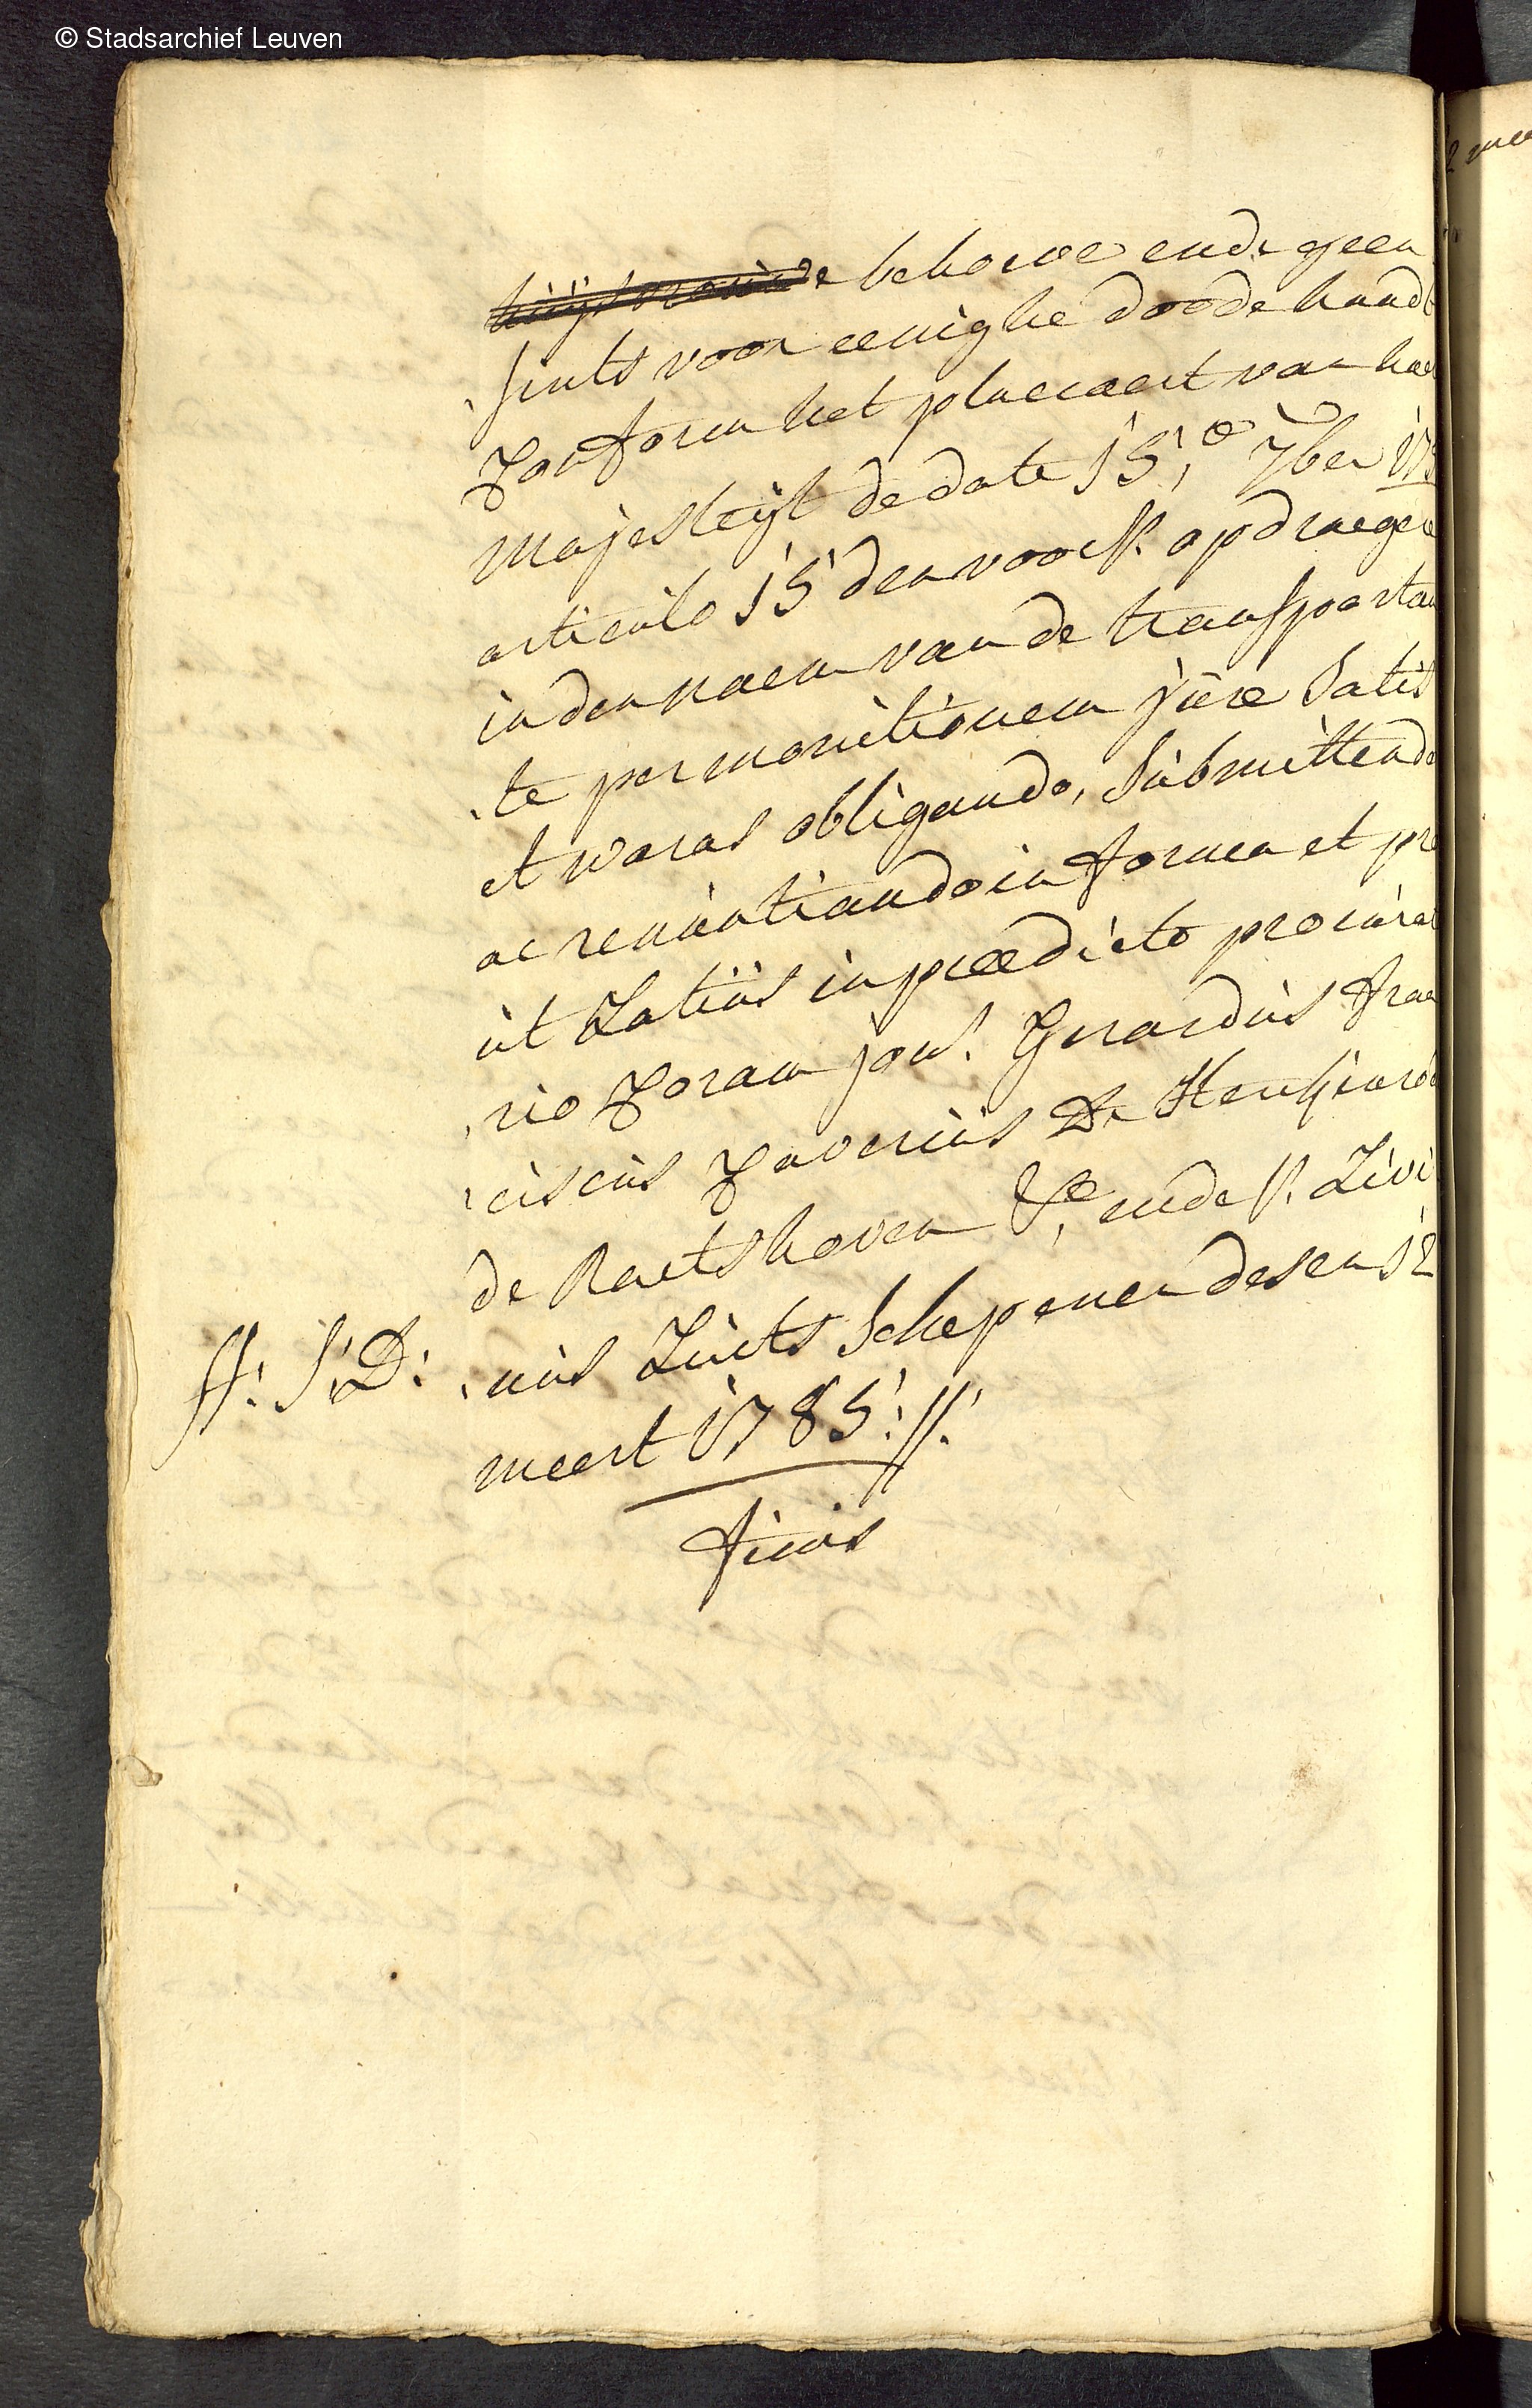 © Stadsarchief Leuven
2 mee
behoeve ende geen
sints voor eenighe doode handt
Conform het placcaert van hae
majesteijt de date 15.e 7ber 175
articulo 15 den voors. opdraeger
in den naem van de transportan
te per monitionem jure satis
et waras obligando, submittendo
ac renuntiando in forma et pro
ut Latius in praedicto procurat
rio Coram jon.r Gerardus Fran
ciscus Xaverius De Herckenrode
de Raetshoven &c, ende Sr. Livi
nus Luyts Schepenen desen 12
meert 1785 ://:
ff: S: D:
Finis